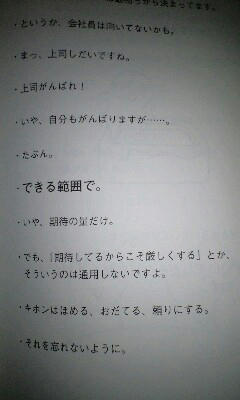 から決まってます。
・というか、会社員は向いてないかも。
・まっ、上司しだいですね。
・上司がんばれ！
・いや、自分もがんばりますが……。
・たぶん。
・できる範囲で。
・いや、期待の量だけ。
・でも、「期待してるからこそ厳しくする」とか、
そういうのは通用しないですよ。
・キホンはほめる、おだてる、頼りにする。
・それを忘れないように。